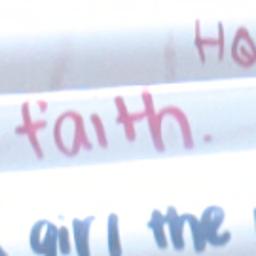 HO
faith.
girl the